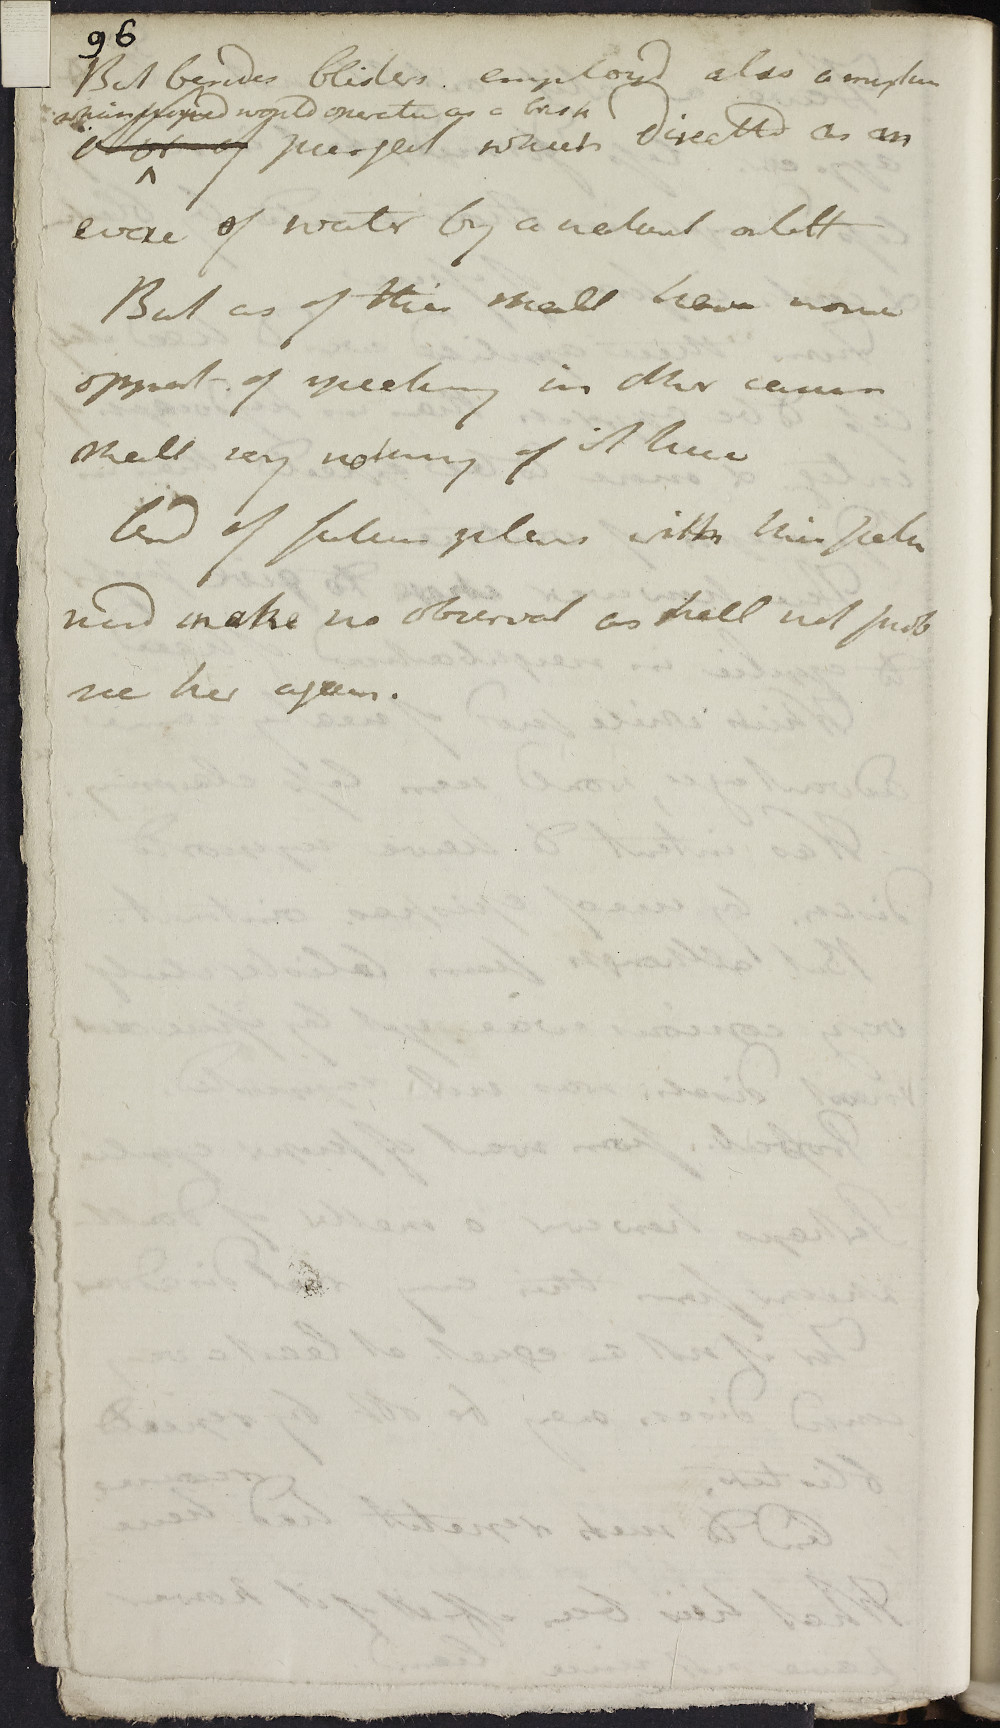 96
But besides blisters employd also a
which would operate as a brisk
purgat which directed as an
evac of water by a natural outlett
But as of this shall have more
opport. of speaking in other cases
shall say nothing of it here
And of future plans with this patn
need make no observat as shall not prob
see her again.